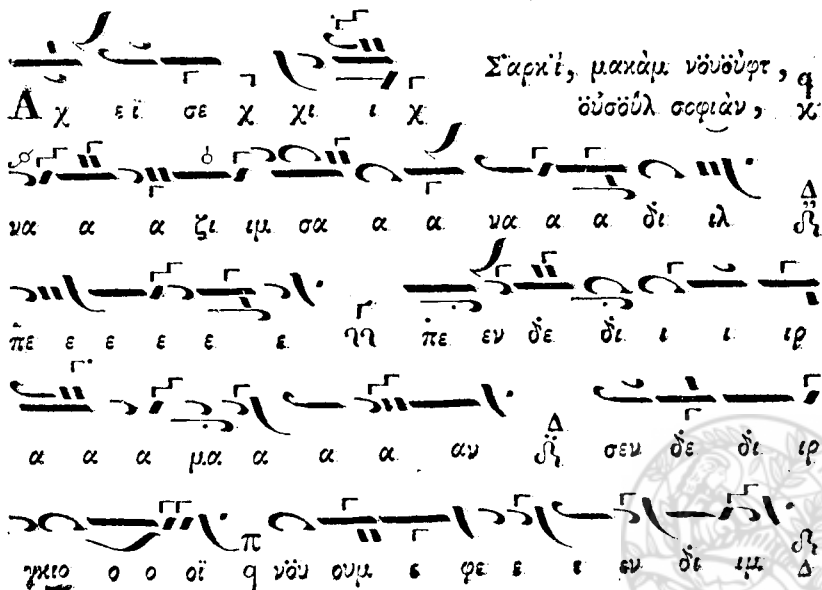 Σ̈αρκί, μακὰμ νϋουϋφτ,
οὐσοὺλ σοφιὰν,
Α χ ει ϊ σε χ χι ι χ
να α α ζι ιμ σα α α να α α δ̇ι ιλ Δ
π̇ε ε ε ε ε ε π̇ε εν δ̇ε δ̇ι ι ι ιρ
α α α μα α α α αν Δ σεν δ̇ε δ̇ι ιρ
γκιο ο ο οϊ π q νϋου ουμ ε φε ε ι εν δ̇ι ιμ Δ